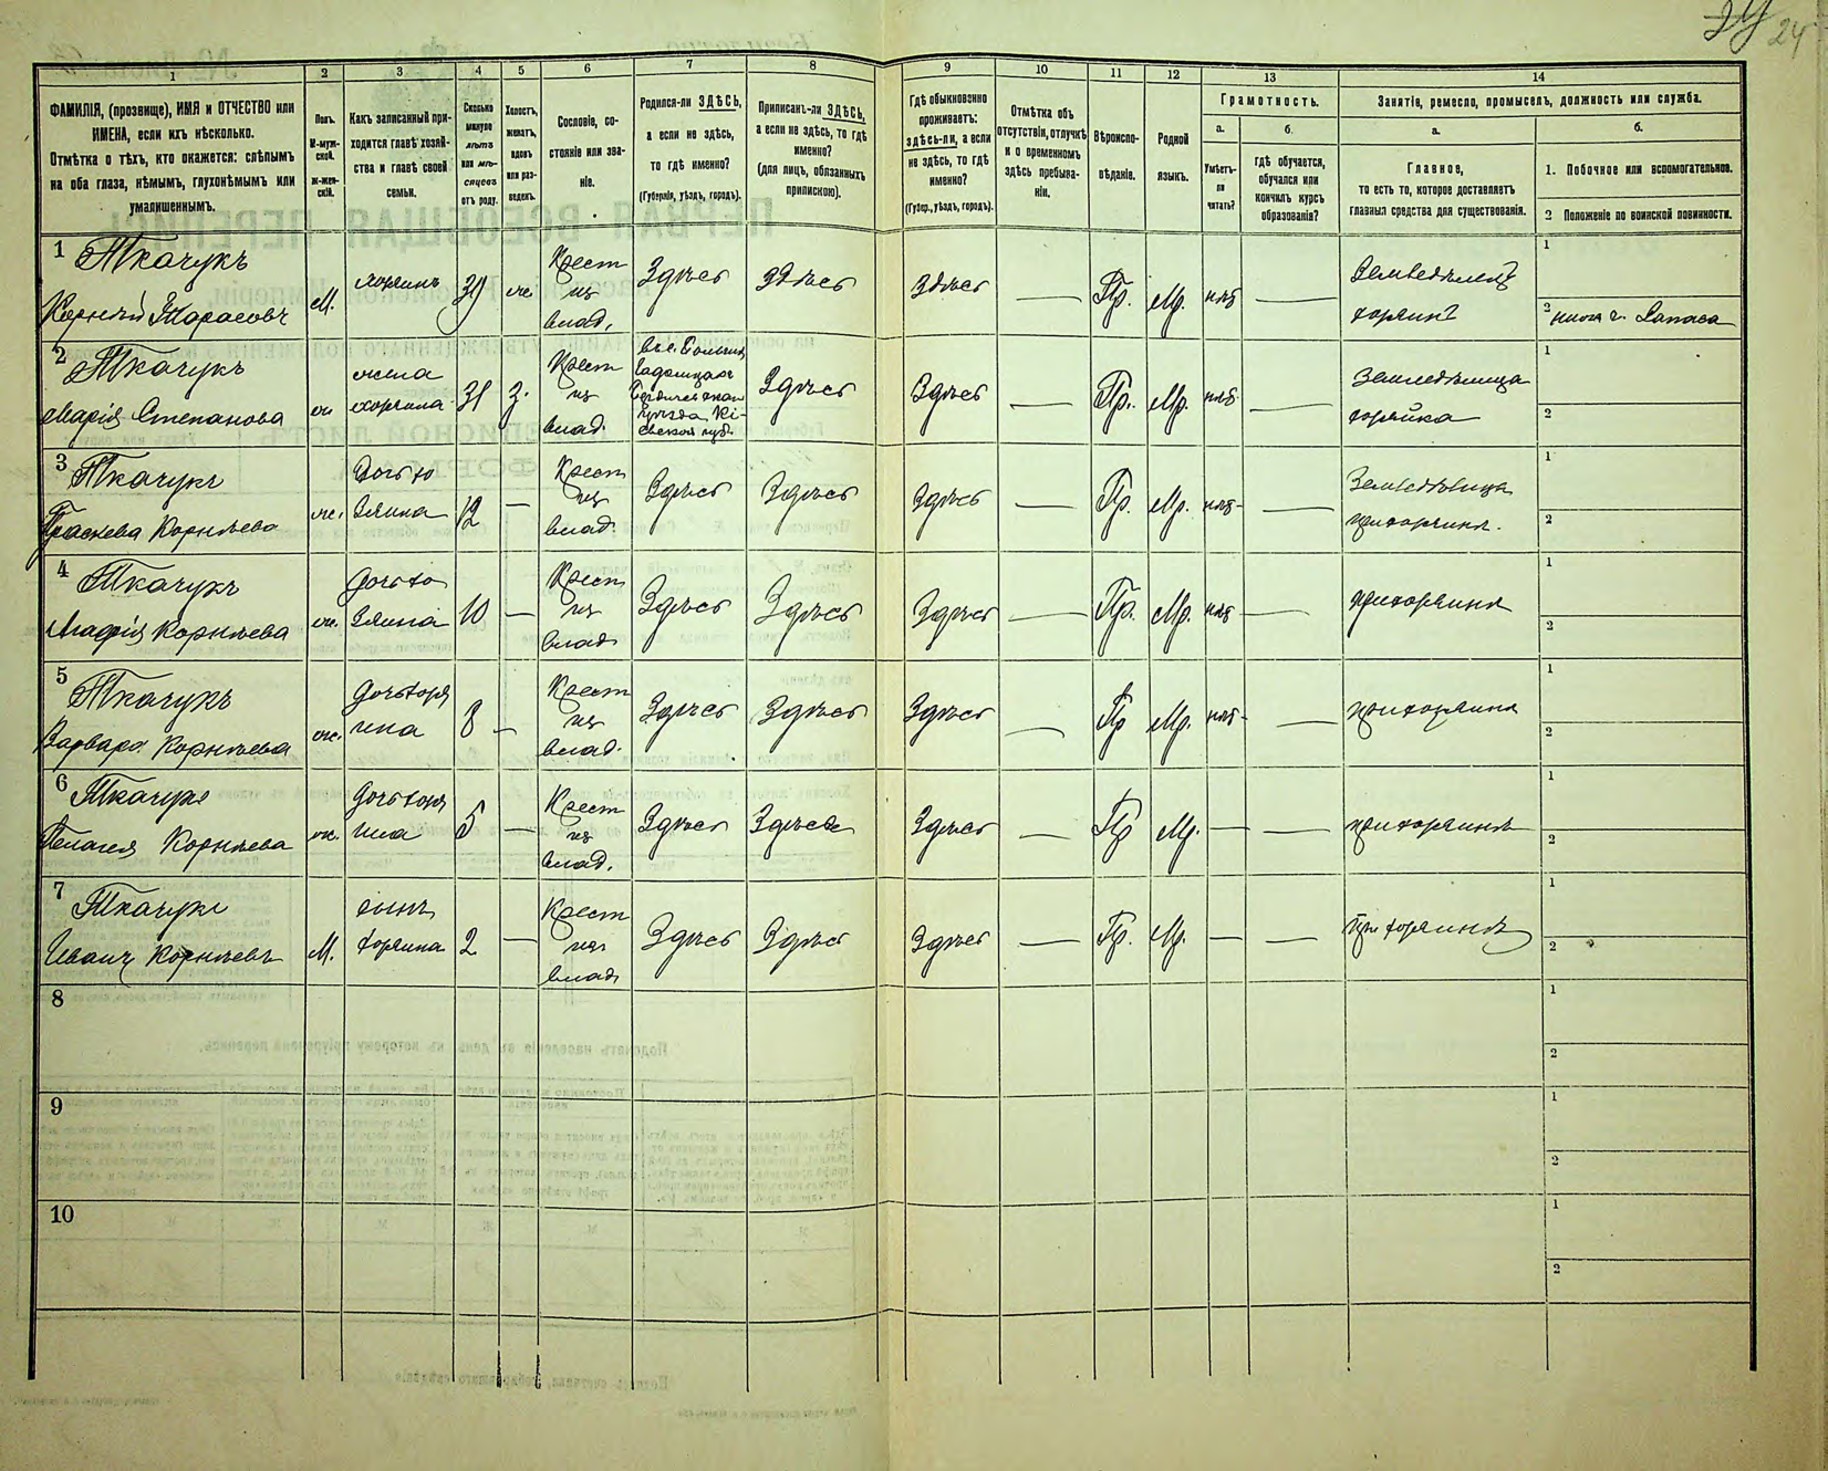 24
1 2 3 4 5 6 7 8 9 10 11 12 13 14
ФАМИЛІЯ, (прозвище), ИМЯ и ОТЧЕСТВО или
ИМЕНА, если ихъ нѣсколько.
Отмѣтка о тѣхъ, кто окажется: слѣпымъ
на оба глаза, нѣмымъ, глухонѣмымъ или
умалишеннымъ.
Полъ.
М-муж-
ской.
Ж-жен-
скій.
Какъ записанный при-
ходится главѣ хозяй-
ства и главѣ своей
семьи.
Сколько
минуло
лѣтъ
или мѣ-
сяцевъ
отъ роду.
Холостъ,
женатъ,
вдовъ
или раз-
веденъ.
Сословіе, со-
стояніе или зва-
ніе.
Родился-ли ЗДѢСЬ,
а если не здѣсь,
то гдѣ именно?
(Губернія, уѣздъ, городъ).
Приписанъ-ли ЗДѢСЬ,
а если не здѣсь, то гдѣ
именно?
(для лицъ, обязанныхъ
припискою).
Гдѣ обыкновенно
проживаетъ:
здѣсь-ли, а если
не здѣсь, то гдѣ
именно?
(Губер., уѣздъ, городъ).
Отмѣтка объ
отсутствіи, отлучкѣ
и о временномъ
здѣсь пребыва-
ніи.
Вѣроиспо-
вѣданіе.
Родной
языкъ.
Грамотность.
а.
Умѣетъ-
ли
читать?
б.
гдѣ обучается,
обучался или
кончилъ курсъ
образованія?
Занятіе, ремесло, промыселъ, должность или служба.
а.
Главное,
то есть то, которое доставляетъ
главныя средства для существованія.
б.
1. Побочное или вспомогательное.
2 Положеніе по воинской повинности.
1 Ткачукъ
Корнѣй Тарасовъ
М.
хозяинъ
39
же
Крест
из
влад.
Здѣсь
здѣсь
здѣсь
—
Пр.
Мр.
нѣт
—
Земледѣлец
хозяин
1
2
2 Ткачукъ
Марія Степанова
ж
жена
хозяина
31
з.
Крест
из
влад.
Здѣсь
Здѣсь
—
Пр.
Мр.
нѣт
—
Земледѣлица
хозяйка
1
2
3 Ткачукъ
Праскева Корнѣева
ж.
Дочь хо
зяина
12
—
Крест
из
влад.
Здѣсь
Здѣсь
Здѣсь
—
Пр.
Мр.
нѣт
—
Земледѣлица
при хозяинѣ.
1
2
4 Ткачукъ
Агафія Корнѣева
ж.
Дочь хо
зяина
10
—
Крест
из
влад
Здѣсь
Здѣсь
Здѣсь
—
Пр.
Мр.
нѣт
—
при хозяинѣ
1
2
5 Ткачукъ
Варвара Корнѣева
ж.
Дочь хозя
ина
8
—
Крест
из
влад.
Здѣсь
Здѣсь
Здѣсь
—
Пр
Мр.
нѣт
—
при хозяинѣ
1
2
6 Ткачукъ
Пелагея Корнѣева
ж.
Дочь хозя
ина
5
—
Крест
из
влад.
Здѣсь
Здѣсь
Здѣсь
—
Пр
Мр.
—
—
при хозяинѣ
1
2
7 Ткачукъ
Иванъ Корнѣевъ
М.
сынъ
хозяина
2
—
Крест
из
влад
Здѣсь
Здѣсь
Здѣсь
—
Пр.
Мр.
—
—
при хозяинѣ
1
2
8
1
2
9
1
2
10
1
2